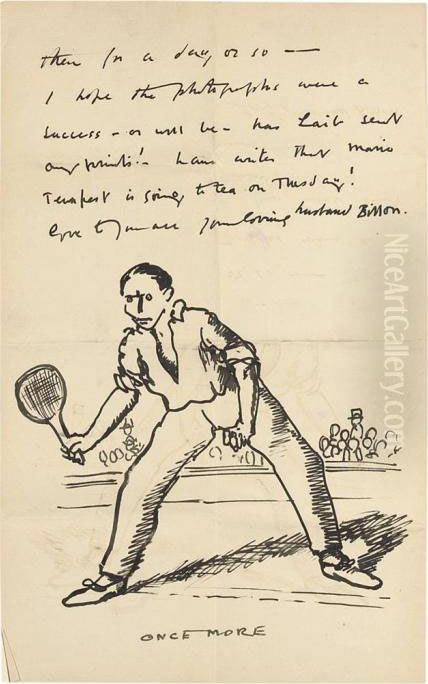 then for a day or so —
I hope the photographs were a
success – or will be – has Laib sent
any prints! – writes that Marie
Tempest is going to tea on Tuesday!
Love to you all your loving husband Billon.
ONCE MORE
NiceArtGallery.com